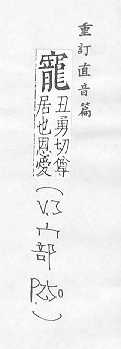 重訂直音篇
寵
丑勇切尊
居也恩愛
(V.3宀部P.250)